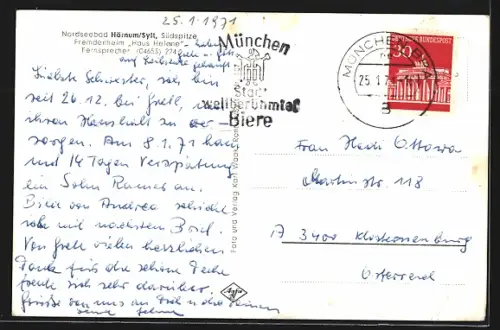 25.1.1971
Nordseebad Hörnum/Sylt, Südspitze
Fremdenheim „Haus Helene“
Fernsprecher (04653) 274
München
Stadt
weltberühmter
Biere
MÜNCHEN
25.1.7
DEUTSCHE BUNDESPOST
30
Liebste Schwester, wir bin
seit 26.12. bei Grete, um
ihren Haushalt zu ver-
sorgen. Am 8.1.71 kam
mit 14 Tagen Verspätung
ein Sohn Rainer an.
Bild von Andrea schicke
ich mit nächstem Brief.
Von Grete vielen herzlichen
Dank für die schöne Decke
freute sich sehr darüber.
Grüsse von uns an Dich u. die Deinen
Foto und Verlag Karl
Agfa
Frau Hedi Ottowa
Martinstr. 118
A 3400 Klosterneuburg
Österreich